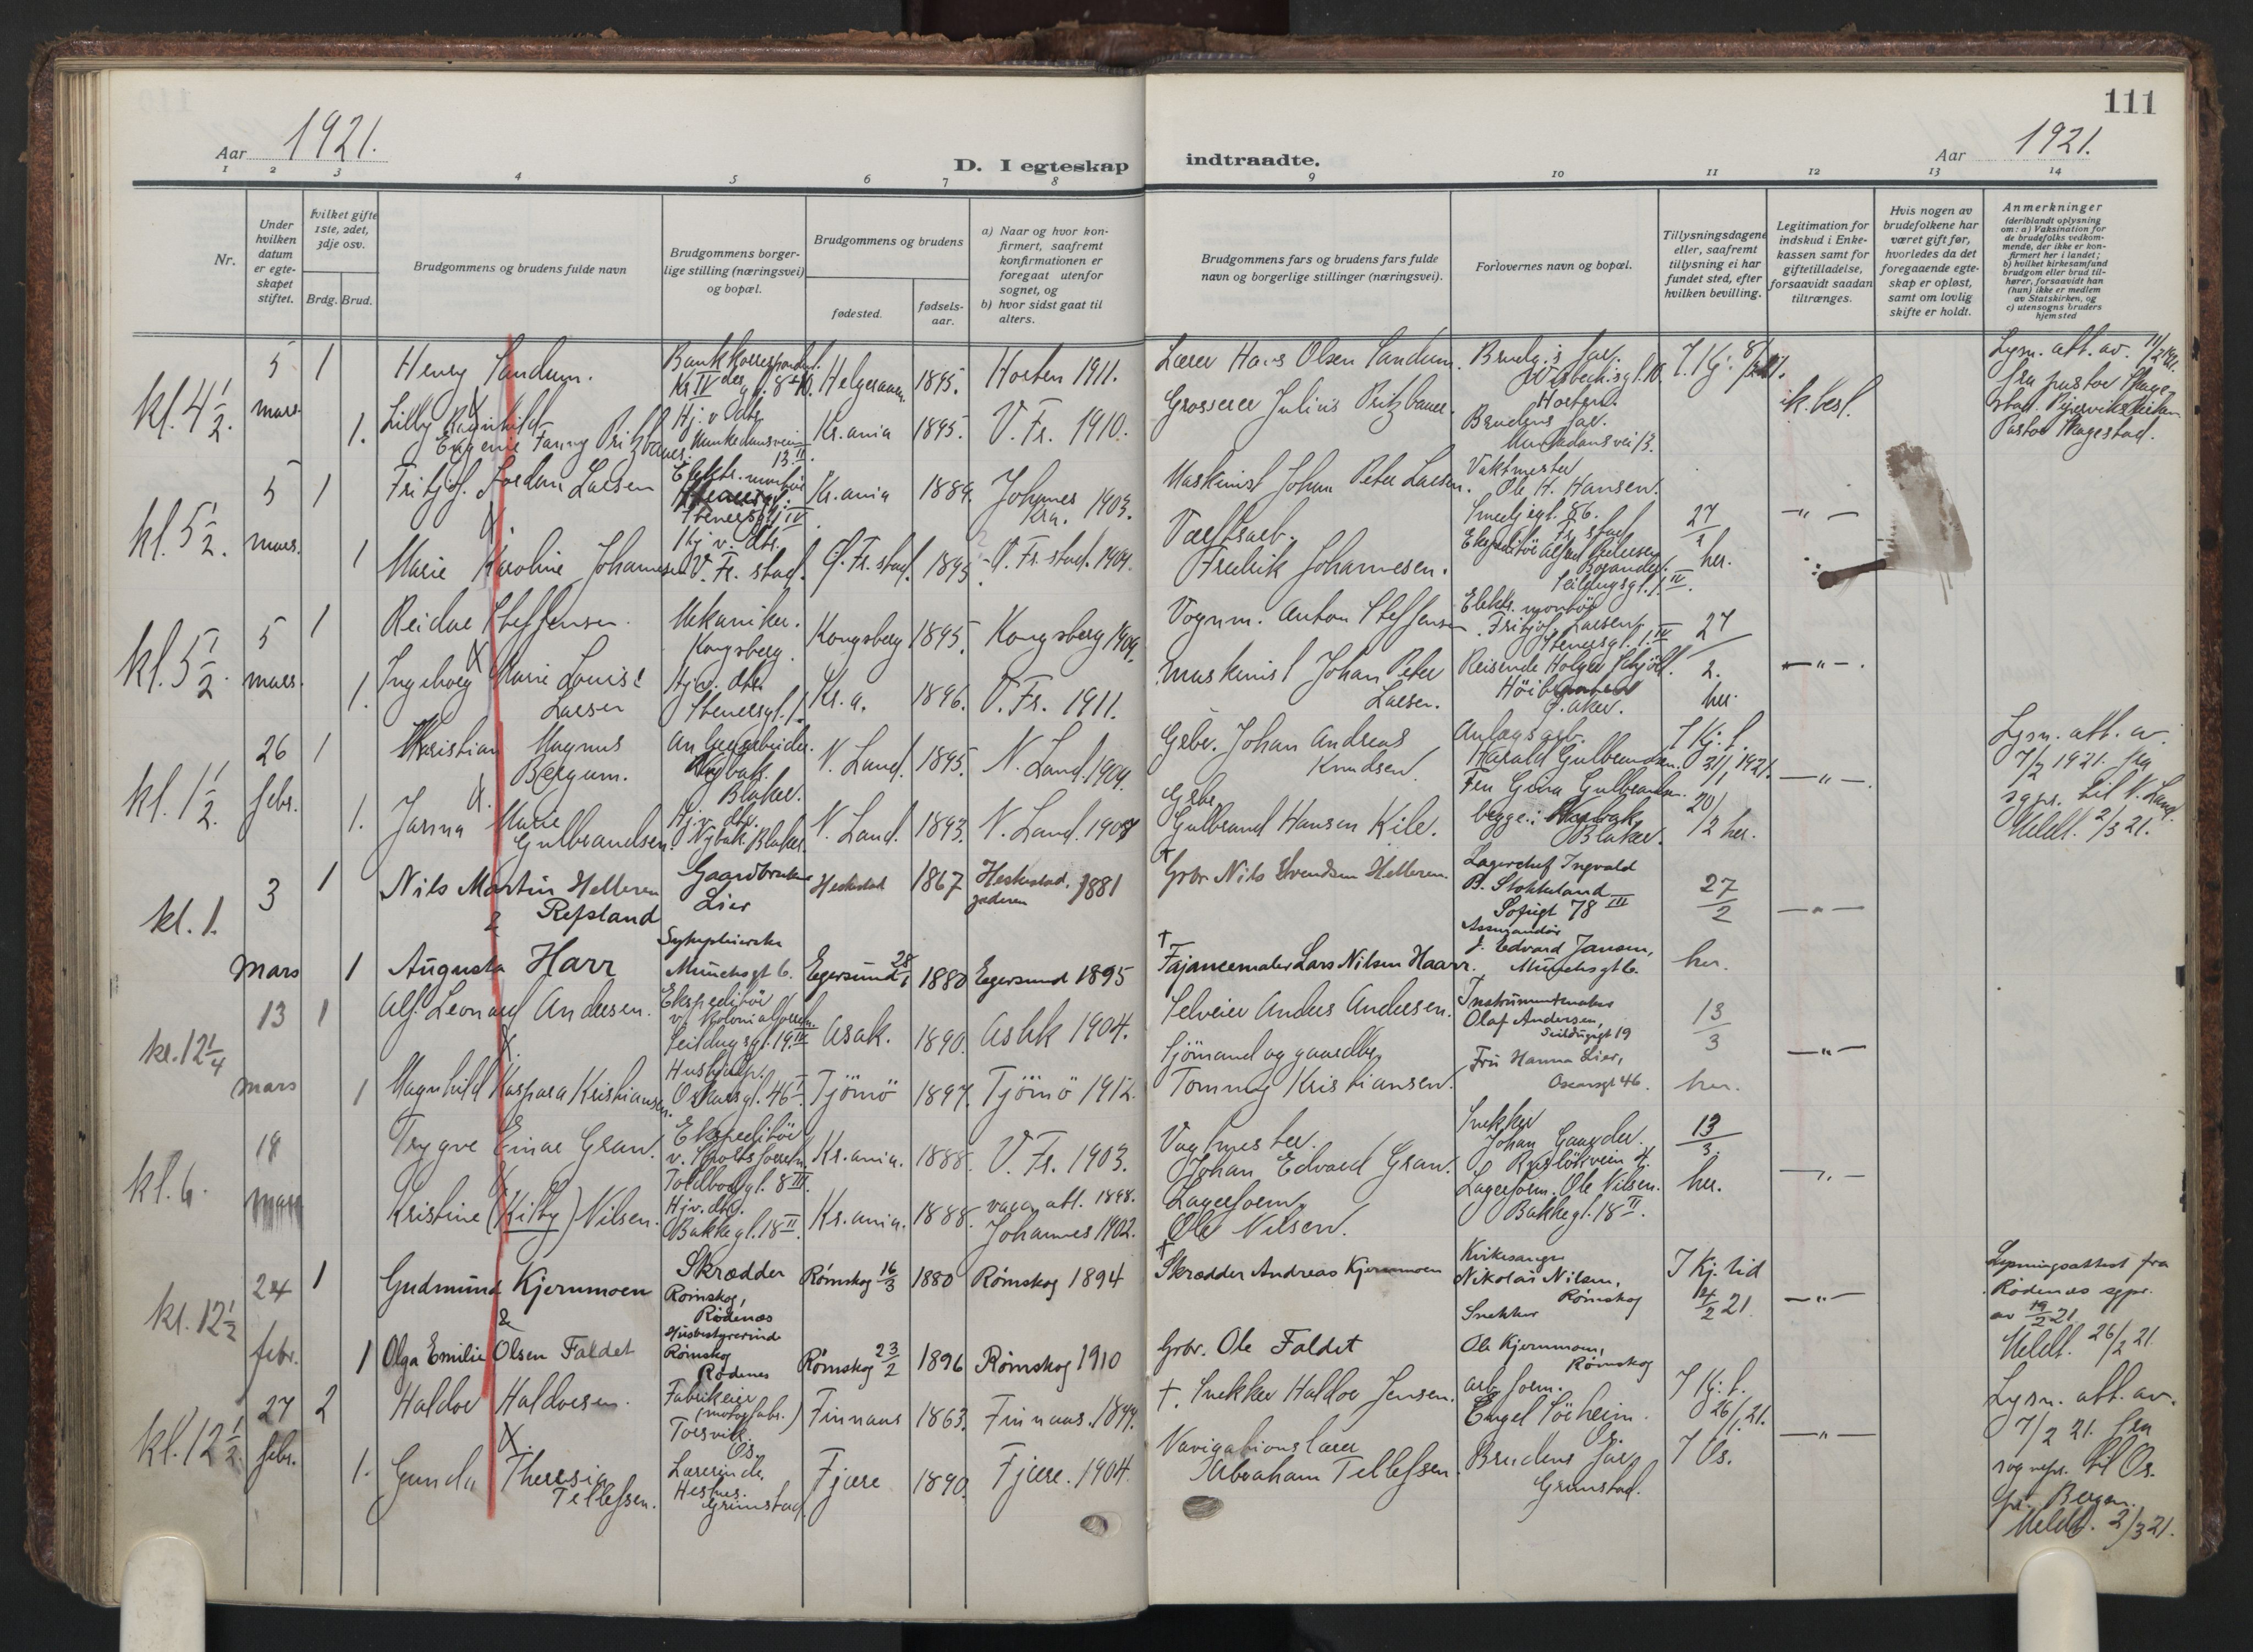 111
Aar 1921.
D. I egteskap indtraadte.
Aar 1921.
1 2 3 4 5 6 7 8 9 10 11 12 13 14
Nr.
Under hvilken datum er egteskapet stiftet.
Hvilket gifte 1ste, 2det, 3dje osv.
Brdg. Brud.
Brudgommens og brudens fulde navn
Brudgommens borgerlige stilling (næringsvei) og bopæl.
Brudgommens og brudens
fødested.
fødselsaar.
a) Naar og hvor konfirmert, saafremt konfirmationen er foregaat utenfor sognet, og
b) hvor sidst gaat til alters.
Brudgommens fars og brudens fars fulde navn og borgerlige stillinger (næringsvei).
Forlovernes navn og bopæl.
Tillysningsdagene eller, saafremt tillysning ei har fundet sted, efter hvilken bevilling.
Legitimation for indskud i Enkekassen samt for giftetilladelse, forsaavidt saadan tiltrænges.
Hvis nogen av brudefolkene har været gift før, hvorledes da det foregaaende egteskap er opløst, samt om lovlig skifte er holdt.
Anmerkninger
(deriblandt oplysning om: a) Vaksination for de brudefolks vedkommende, der ikke er konfirmert her i landet; b) hvilket kirkesamfund brudgom eller brud tilhører, forsaavidt han (hun) ikke er medlem av Statskirken, og c) utensogns bruders hjemsted
kl. 4 1/2. 5 mars. 1 Henry Sandum. Helgeraaen. 1895. Horten 1911. Lærer Hans Olsen Sandum. Brudg.s far.
Horten.
1. Lilly Ragnhild Eugenie Fanny Pritzbauer. Hj. v. dtr. Munkedamsveien 13 II. Kr.ania 1895. V. Fr. 1910. Grosserer Julius Pritzbauer. Brudens far. Munkedamsvei 13. ik. besl.
Lysn. att. av 11/2 1921. fra pastor
Pastor
kl. 5 1/2. 5 mars. 1 Fritjof Jordan Larsen Elektr. montør Stenersgt. 1 IV Kr.ania 1889. Johannes Kra. 1903. Maskinist Johan Peter Larsen. Vaktmester Ole H. Hansen. Smedjegt. 86. 27/2 her. - " -
1 Marie Karoline Johannesen Hj. v. dtr. V. Fr. stad. 1895 Fr. stad. 1909. Verftsarb. Fredrik Johannesen. Fr. stad
Seildugsgt. 1 IV.
kl. 5 1/2. 5 mars. 1 Reidar Steffensen. Mekaniker. Kongsberg. Kongsberg 1895. Kongsberg 1909. Vognm. Anton Steffensen Elektr. montør Fritjof Larsen, Stenersgt. 1. IV 27/2. her. - " -.
1. Ingeborg Marie Louise Larsen Hj. v. dtr. Stenersgt. 1. Kr.a. 1896. V. Fr. 1911. Maskinist Johan Peter Larsen. Reisende Holger
Ø. aker.
kl. 1 1/2. 26 febr. 1 Kristian Magnus Bergum. Anlegsarbeider. Nybak. Blaker. N. Land. 1895. N. Land. 1909. Grbr. Johan Andreas Knudsen. Anlægsarb. Harald Gulbrandsen. I Kj. f. 31/1 1921. - " -.
1. Jarina Marie Gulbrandsen. Hj. v. dtr. Nybak. Blaker. N. Land. 1893. N. Land. 1907 Grbr. Gulbrand Hansen Kile. Fru Gina Gulbrandsen. begge: Blaker. 20/2 her.
Lysn. att. av 7/2 1921. fra sogpr. til N. Land.
Meldt. 2/3 21.
kl. 1. 3 Mars 1 Nils Martin Helleren & Refsland Gaardbruker Lier Heskestad 1867 Heskestad. Jæderen 1881 † Grbr Nils Svendsen Helleren. Lagerchef Ingvald B. Stokkeland Sofiegt 78 III 27/2 her. - " -
1 Augusta Harr Sykepleierske Munchsgt 6. Egersund 28/1 1880 Egersund 1895 † Fajancemaler Lars Nilsen Haarr. Assurandør J. Edvard Jansen, Munchsgt 6.
kl. 12 1/4 13 mars 1 Alf Leonard Andersen. Ekspeditør v. kolonialforretn. Seildugsgt. 19. IV Asak. 1890. Asak 1904. Selveier Anders Andersen. Instrumentmaker Olaf Andersen, Seildugsgt 19 13/3 her. - " -
1 Magnhild Kaspara Kristiansen. Hushjelp. Oskarsgt. 46 I. Tjømø 1897. Tjømø 1912. Sjømand og gaardbr. Tommy Kristiansen. Fru Hanna Lier, Oscarsgt 46.
kl. 6. 18 mars Trygve Einar Gran. Ekspeditør v. Toldbodgt. 8 III. Kr.ania. 1888. V. Fr. 1903. Vagtmester. Johan Edvard Gran. Snekker Johan Gaarder. 13/3. her. - " -
Kristine (Kitty) Nilsen. Hj. v. dtr. Bakkegt. 18 II. Kr.ania. 1888. vacc. att. 1898. Johannes 1902. Lagerform. Ole Nilsen. Lagerform. Ole Nilsen. Bakkegt. 18 II.
kl. 12 1/2 24 febr. 1 Gudmund Kjernmoen & Skrædder Rømskog, Rødenes Rømskog 16/3 1880 Rømskog 1894 † Skrædder Andreas Kjernmoen Kirkesanger Nikolai Nilsen, Rømskog I Kj. tid 4/2 21. - " -
1 Olga Emilie Olsen Faldet Husbestyrerinde Rømskog Rødenes Rømskog 23/2 1896 Rømskog 1910 Grbr. Ole Faldet Snekker Ole Kjernmoen, Rømskog
Lysningsattest fra Rødenes sogpr. av 19/2 21.
Meldt. 26/2 21.
kl. 12 1/2. 27 febr. 2 Haldor Haldorsen. Fabrikeier (motorfabr.) Torsvik. Os. Finnaas 1863. Finnaas. 1877. †. Snekker Haldor Jensen. Arb. form. Engel Søeheim. Os. I Kj. f. 26/1 21. I Os. - " -
1. Gunda Theresia Tellefsen. Lærerinde. Hesnes. Grimstad. Fjære 1890. Fjære. 1904. Navigationslærer Abraham Tellefsen. Brudens far, Grimstad.
Lysn. att. av. 7/2 21. fra sognepr. til Os. pr. Bergen.
Meldt. 2/3 21.